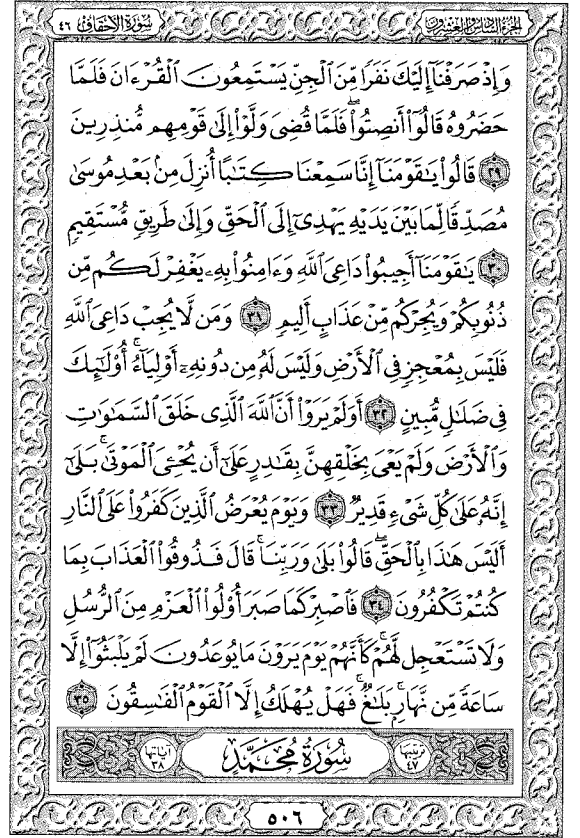 الجزء السادس والعشرون
سورة الأحقاف ٤٦
وَإِذْ صَرَفْنَآ إِلَيْكَ نَفَرًا مِّنَ ٱلْجِنِّ يَسْتَمِعُونَ ٱلْقُرْءَانَ فَلَمَّا
حَضَرُوهُ قَالُوٓا۟ أَنصِتُوا۟ ۖ فَلَمَّا قُضِىَ وَلَّوْا۟ إِلَىٰ قَوْمِهِم مُّنذِرِينَ
٢٩ قَالُوا۟ يَـٰقَوْمَنَآ إِنَّا سَمِعْنَا كِتَـٰبًا أُنزِلَ مِنۢ بَعْدِ مُوسَىٰ
مُصَدِّقًا لِّمَا بَيْنَ يَدَيْهِ يَهْدِىٓ إِلَى ٱلْحَقِّ وَإِلَىٰ طَرِيقٍ مُّسْتَقِيمٍ
٣٠ يَـٰقَوْمَنَآ أَجِيبُوا۟ دَاعِىَ ٱللَّهِ وَءَامِنُوا۟ بِهِۦ يَغْفِرْ لَكُم مِّن
ذُنُوبِكُمْ وَيُجِرْكُم مِّنْ عَذَابٍ أَلِيمٍ ٣١ وَمَن لَّا يُجِبْ دَاعِىَ ٱللَّهِ
فَلَيْسَ بِمُعْجِزٍ فِى ٱلْأَرْضِ وَلَيْسَ لَهُۥ مِن دُونِهِۦٓ أَوْلِيَآءُ ۚ أُو۟لَـٰٓئِكَ
فِى ضَلَـٰلٍ مُّبِينٍ ٣٢ أَوَلَمْ يَرَوْا۟ أَنَّ ٱللَّهَ ٱلَّذِى خَلَقَ ٱلسَّمَـٰوَٰتِ
وَٱلْأَرْضَ وَلَمْ يَعْىَ بِخَلْقِهِنَّ بِقَـٰدِرٍ عَلَىٰٓ أَن يُحْـِۧىَ ٱلْمَوْتَىٰ ۚ بَلَىٰٓ
إِنَّهُۥ عَلَىٰ كُلِّ شَىْءٍ قَدِيرٌ ٣٣ وَيَوْمَ يُعْرَضُ ٱلَّذِينَ كَفَرُوا۟ عَلَى ٱلنَّارِ
أَلَيْسَ هَـٰذَا بِٱلْحَقِّ ۖ قَالُوا۟ بَلَىٰ وَرَبِّنَا ۚ قَالَ فَذُوقُوا۟ ٱلْعَذَابَ بِمَا
كُنتُمْ تَكْفُرُونَ ٣٤ فَٱصْبِرْ كَمَا صَبَرَ أُو۟لُوا۟ ٱلْعَزْمِ مِنَ ٱلرُّسُلِ
وَلَا تَسْتَعْجِل لَّهُمْ ۚ كَأَنَّهُمْ يَوْمَ يَرَوْنَ مَا يُوعَدُونَ لَمْ يَلْبَثُوٓا۟ إِلَّا
سَاعَةً مِّن نَّهَارٍۭ ۚ بَلَـٰغٌ ۚ فَهَلْ يُهْلَكُ إِلَّا ٱلْقَوْمُ ٱلْفَـٰسِقُونَ ٣٥
ترتيبها ٤٧ سُورَةُ مُحَمَّدٍ آياتها ٣٨
٥٠٦